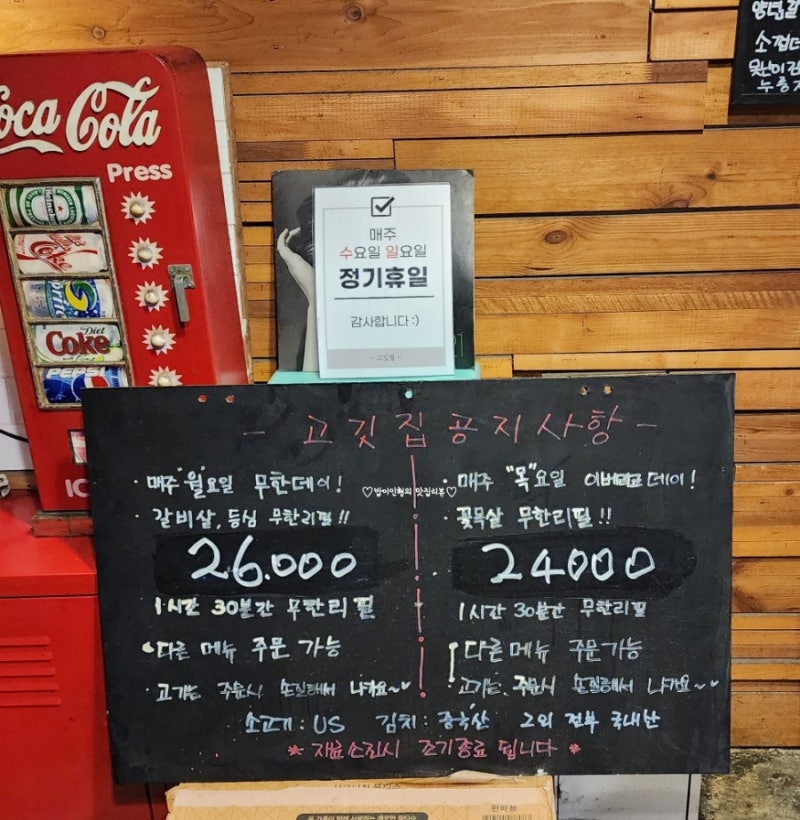 Coca Cola
Press
Heineken
Coke
Sprite
Diet
Coke
PEPSI
IC
매주
수요일 일요일
정기휴일
감사합니다 :)
양념갈
누룽지
- 고깃집 공지사항 -
· 매주 "월"요일 무한데이!
· 갈비살, 등심 무한리필!!
26.000
1시간 30분간 무한리필
· 다른 메뉴 주문 가능
· 고기는 주문시 손질해서 나가요~♡
♡밤이인형의 맛집리뷰♡
· 매주 "목"요일 이베리코 데이!
· 꽃목살 무한리필!!
24000
1시간 30분간 무한리필
다른 메뉴 주문가능
고기는 주문시 손질해서 나가요~♡
소고기 : US 김치 : 중국산 그외 전부 국내산
* 재료소진시 조기종료 됩니다 *